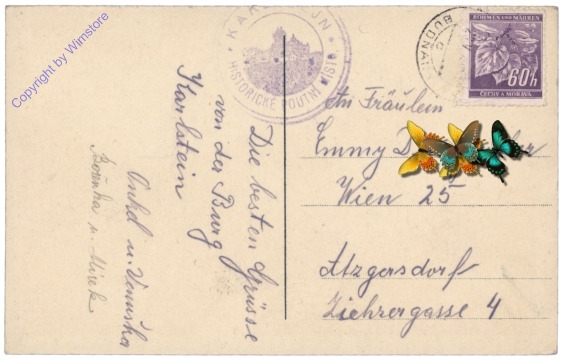 Copyright by Wimstore
HISTORICKÉ POUTNÍ MÍSTO
BUDŇAN
BÖHMEN UND MÄHREN
60h
ČECHY A MORAVA
Die besten Grüsse
von der Burg
Karlstein
Onkel u. Venuška
Boženka u. Mirek
An Fräulein
Emmy
Wien 25
Atzgersdorf
Ziehrergasse 4